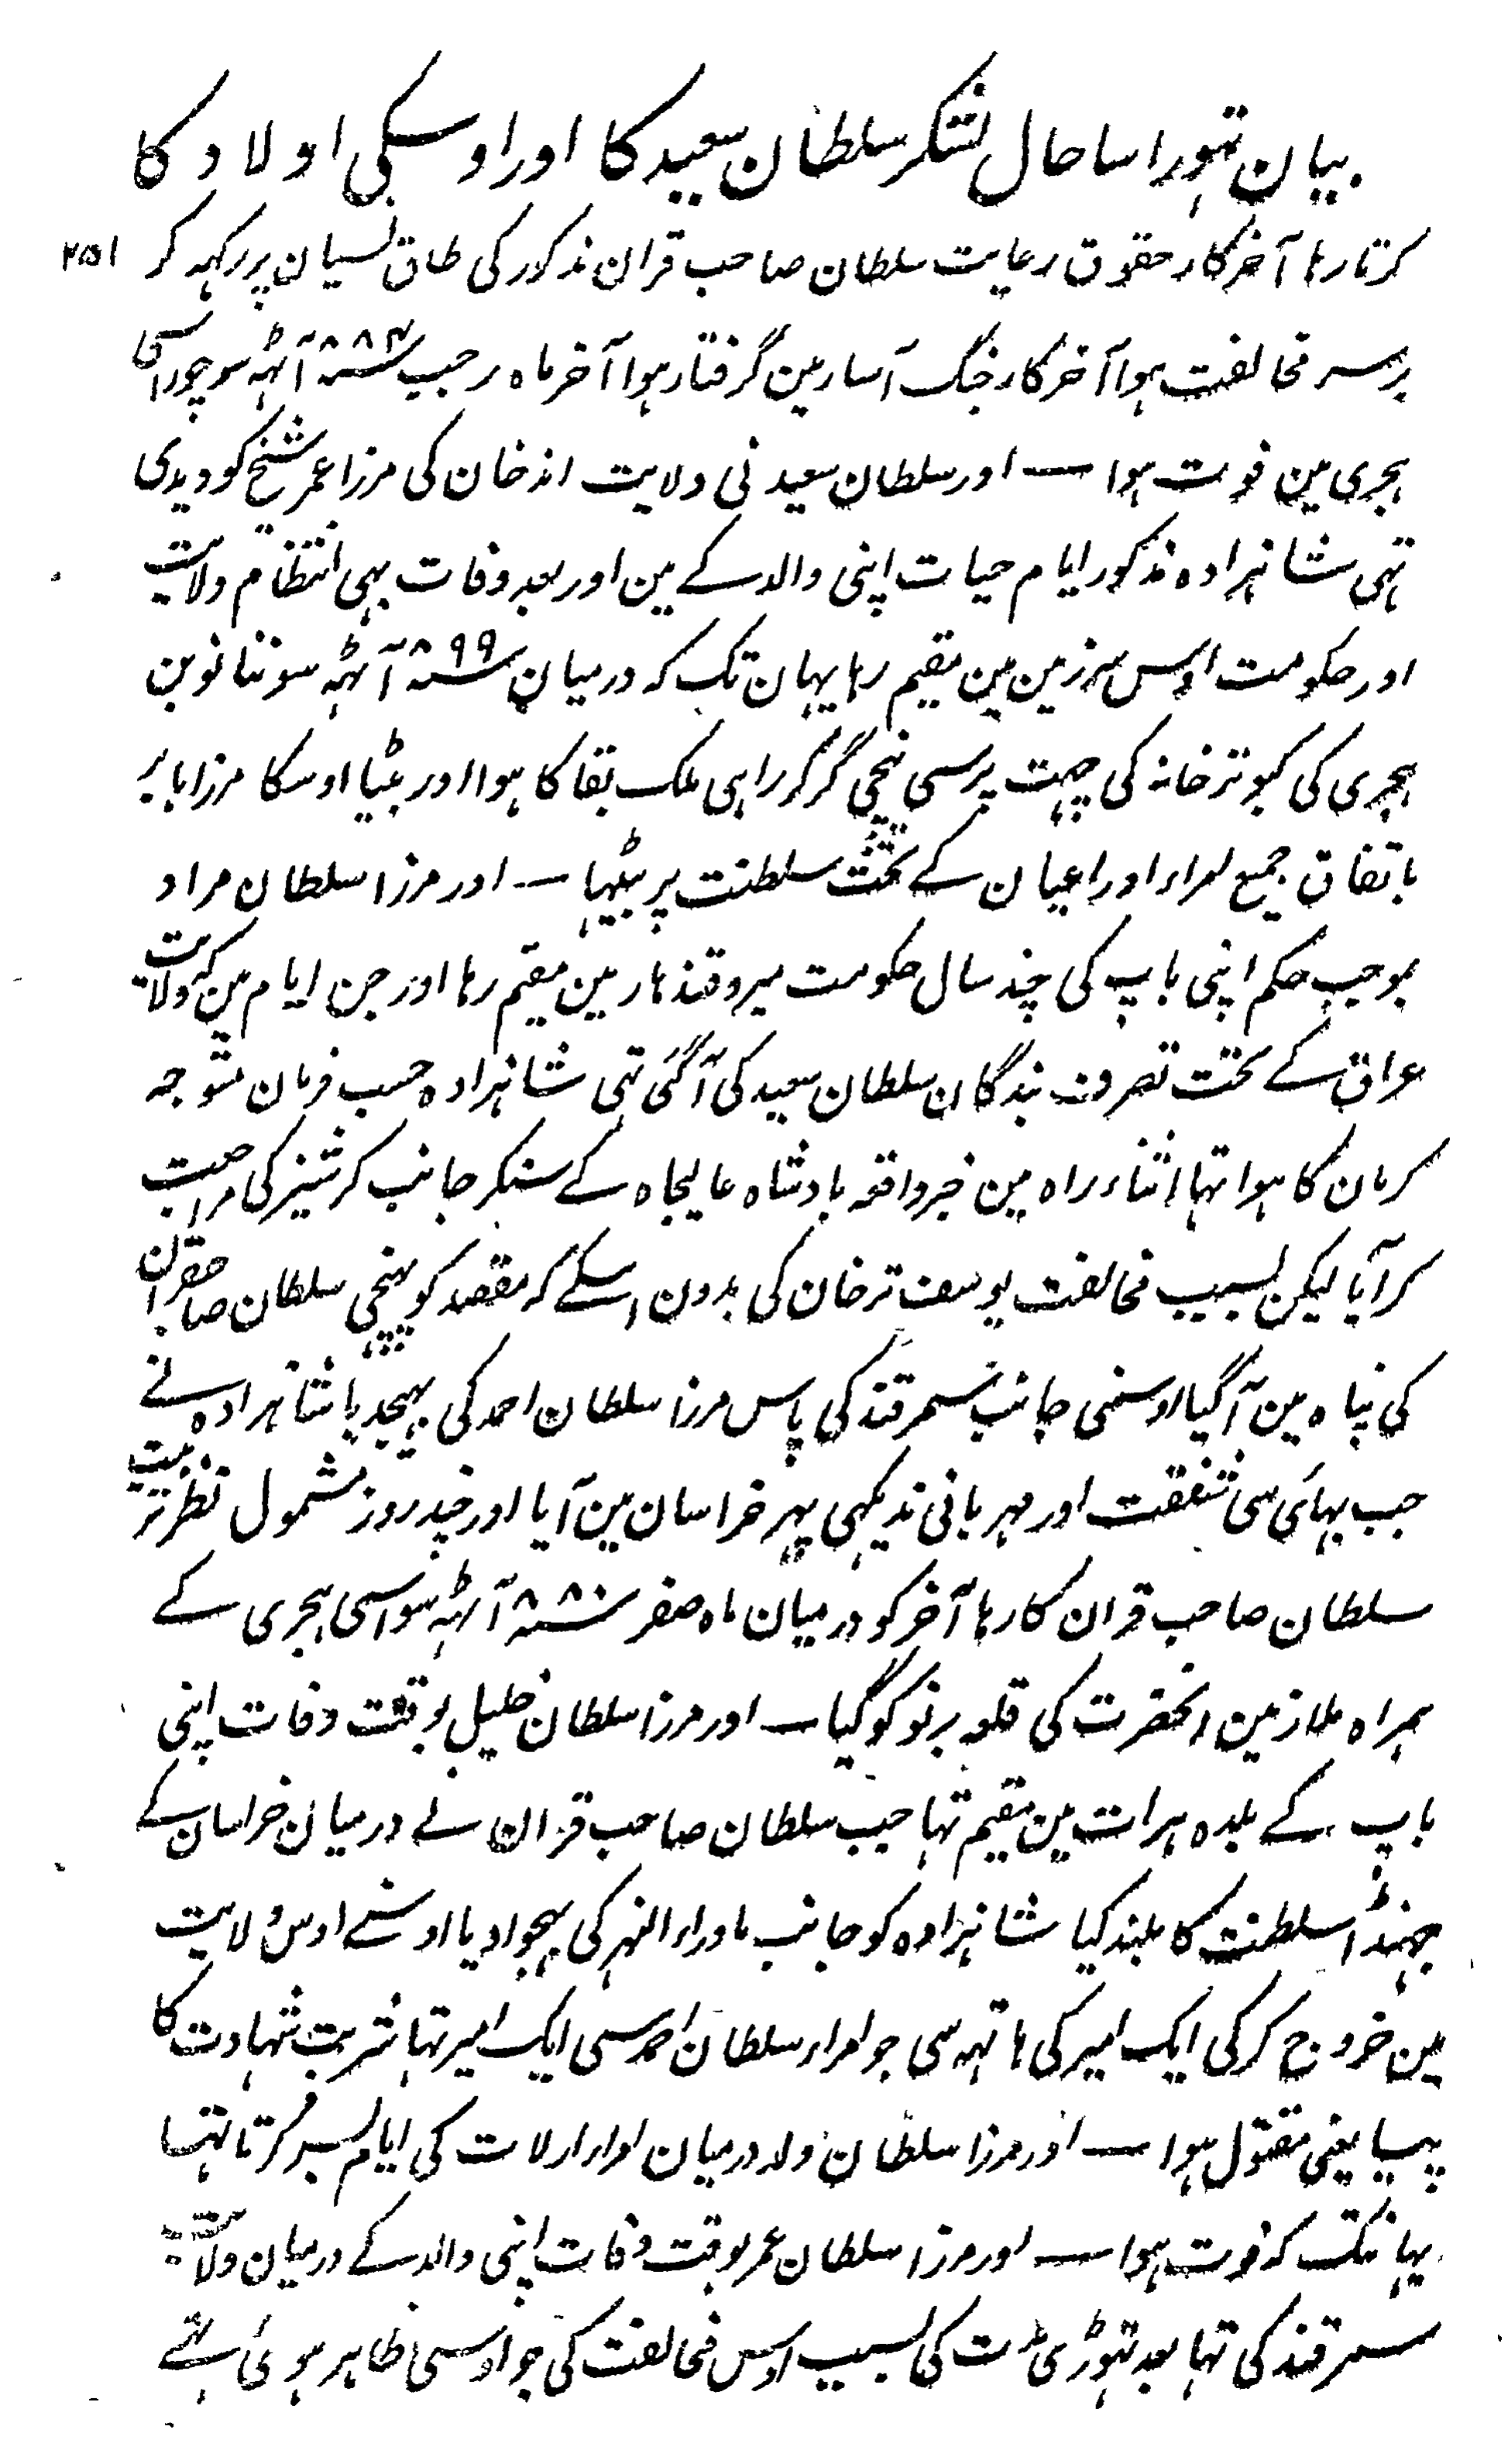 بیان تہوڑا سا حال لشکر سلطان سعید کا اور اوسکی اولاد کا
۲۵۱
کرتا رہا آخر کار حقوق رعایت سلطان صاحب قران مذکور کی طاق نسیان پر رکہہ کر
برسر مخالفت ہوا آخر کار جنگ آسار مین گرفتار ہوا آخر ماہ رجب سنہ ۸۸۴ آٹہہ سو چوراسی
ہجری مین فوت ہوا ــ اور سلطان سعید نی ولایت اندخان کی مرزا عمر شیخ کو دیدی
تہی شاہزادہ مذکور ایام حیات اپنی والد کے مین اور بعد وفات بہی انتظام ولایت
اور حکومت اوس سرزمین مین مقیم رہا یہان تک کہ درمیان سنہ ۸۹۹ آٹہہ سو ننانوین
ہجری کی کبوتر خانہ کی چہت پر سی نیچی گر کر راہی ملک بقا کا ہوا اور بیٹا اوسکا مرزا بابر
باتفاق جمیع امراء اور اعیان کے تخت سلطنت پر بیٹہا ــ اور مرزا سلطان مراد
بموجب حکم اپنی باپ کی چند سال حکومت سیر وقندہار مین مقیم رہا اور جن ایام مین کہ ولایت
عراق کے تحت تصرف بندگان سلطان سعید کی آگئی تہی شاہزادہ حسب فرمان متوجہ
کرمان کا ہوا تہا اثناء راہ مین خبر واقعہ بادشاہ عالیجاہ کے سنکر جانب کرشیز کی مراجعت
کر آیا لیکن بسبب مخالفت یوسف ترخان کی بدون اسکے کہ مقصد کو پہنچی سلطان صاحبقران
کی پناہ مین آگیا اوسنی جانب سمرقند کی پاس مرزا سلطان احمد کی بہیجدیا شاہزادہ نے
جب بہائی سی شفقت اور مہربانی ندیکہی پہر خراسان مین آیا اور چند روز مشمول نظر تربیت
سلطان صاحب قران کا رہا آخر کو درمیان ماہ صفر سنہ ۸۸۰ آٹہہ سو اسی ہجری کے
ہمراہ ملازمین انحضرت کی قلعہ برنو کو گیا ــ اور مرزا سلطان خلیل بوقت وفات اپنی
باپ کے بلدہ ہرات مین مقیم تہا جب سلطان صاحب قران نے درمیان خراسان کے
جہنڈا سلطنت کا بلند کیا شاہزادہ کو جانب ماوراء النہر کی بہجوادیا اوسنے اوس ولایت
مین خروج کر کی ایک امیر کی ہاتہہ سی جو امراء سلطان احمد سی ایک امیر تہا شربت شہادت کا
پیا یعنی مقتول ہوا ــ اور مرزا سلطان ولد درمیان امراء ارلات کی ایام بسر کرتا تہا
یہانتک کہ فوت ہوا ــ اور مرزا سلطان عمر بوقت وفات اپنی والد کے درمیان ولایت
سمرقند کی تہا بعد تہوڑی مدت کی بسبب اوس مخالفت کی جو اوسی ظاہر ہوئی ہے